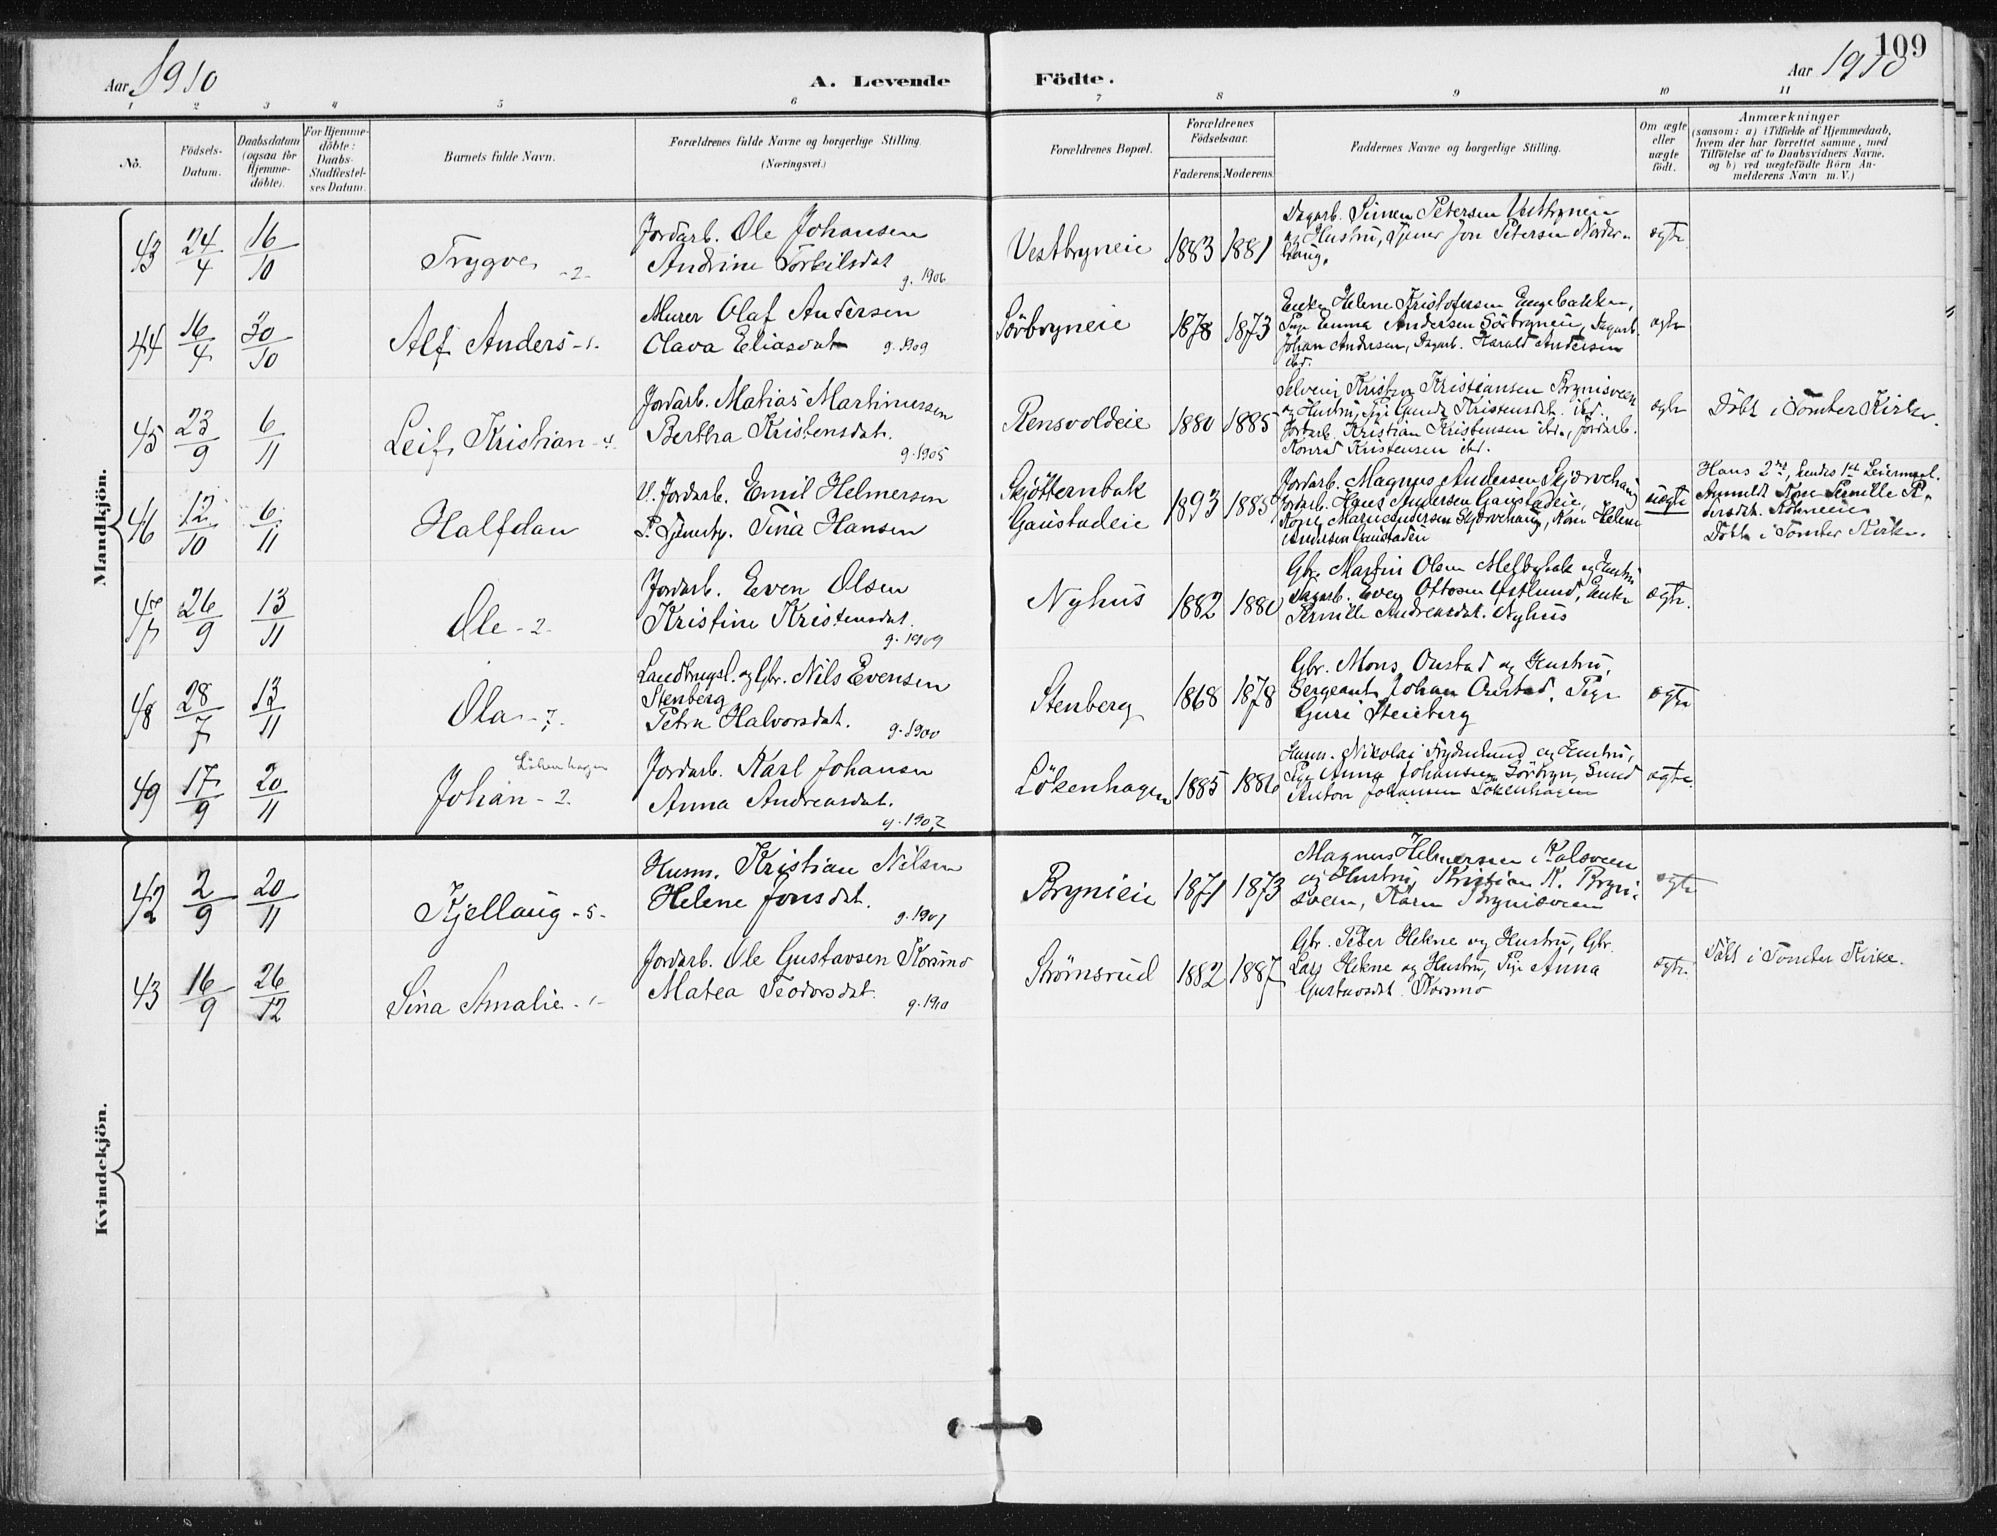 109
Aar 1910
A. Levende
Födte.
Aar 1910
1 2 3 4 5 6 7 8 9 10 11
No.
Födsels-
Datum.
Daabsdatum
(ogsaa for
Hjemme-
döbte).
For Hjemme-
döbte:
Daabs-
Stadfæstel-
ses Datum.
Barnets fulde Navn.
Forældrenes fulde Navne og borgerlige Stilling.
(Næringsvei.)
Forældrenes Bopæl.
Forældrenes
Födselsaar.
Faderens. Moderens.
Faddernes Navne og borgerlige Stilling.
Om ægte
eller
uægte
födt.
Anmærkninger
(saasom: a) i Tilfælde af Hjemmedaab,
hvem der har forrettet samme, med
Tilföielse af to Daabsvidners Navne.
og b) ved uægtefödte Börn An-
melderens Navn m. V.)
Mandkjön.
43 24/4 16/10
Trygve -2-
Jordarb. Ole Johansen
Andrine Torkilsdat
g. 1906
Vestbryneie 1883 1881
Dagarb. Simen Petersen Vestbryneie
og Hustru, Tjener Jon Petersen Norder-
haug.
ægte
44 16/4 30/10
Alf Anders -1-
Murer Olaf Andersen
Olava Eliasdat g. 1909
Sörbryneie 1878 1873
Enke Helene Kristofersen Engebakken,
Pige Emma Andersen Sörbryneie, Dagarb.
Johan Andersen, Dagarb. Harald Andersen
ibd.
ægte
45 23/9 6/11
Leif Kristian -4
Jordarb. Matias Martinussen
Bertha Kristensdat.
g. 1905
Rensvoldeie 1880 1885
Selveier Kristen Kristiansen Brynisveen
og Hustru, Pige Gunda Kristensdat. ibd.
Jordarb. Kristian Kristensen ibd., Jordarb.
Konrad Kristensen ibd.
ægte
Döbt i Tomter Kirke.
46 12/10 6/11
Halfdan
U. Jordarb. Emil Helmersen
P. Tjenestp. Tina Hansen
Skjötternbak
Gaustadeie
1893 1885
Jordarb. Magnus Andersen Skjörvehaug
Jordarb. Hans Andersen Gaustadeie,
Kone Marie Andersen Skjörvehaug, Kone Helene
Andersen Gaustadeie
uægte
Hans 2det, hendes 1ste Leiermaal.
Anmeldt Kone Pernille A-
dersdat.
Döbt i Tomter Kirke.
47 26/9 13/11
Ole -2-
Jordarb. Even Olsen
Kristine Kristensdat.
g. 1909
Nyhus 1882 1880
Gbr. Martin Olsen Melbybak og Hustru
Dagarb. Even Ottosen Østlund, Enke
Pernille Andreasdat. Nyhus
ægte.
48 28/7 13/11
Ola -7.
Landbrugsl. og Gbr. Nils Evensen
Stenberg
Petra Halvorsdat. g. 1900
Stenberg 1868 1878
Gbr. Mons Onstad og Hustru,
Sergeant Johan Onstad, Pige
Guri Stenberg
ægte
49 17/9 20/11
Lökenhagen
Johan -2.
Jordarb. Karl Johansen
Anna Andreasdat.
g. 1907
Lökenhagen 1885 1886
Husm. Nikolai Frydenlund og Hustru,
Pige Anna Johansen Sörbryn, Smed
Anton Johansen Lökenhagen
ægte.
Kvindekjön.
42 2/9 20/11
Kjellaug -5-
Husm. Kristian Nilsen
Helene Jonsdat.
g. 1901
Brynieie 1871 1873
Magnus Helmersen i Kalsveen
og Hustru, Kristian K. Bryni-
sveen, Karen Brynisveen
ægte
43 16/9 26/12
Sina Amalie -1-
Jordarb. Ole Gustavsen Korsmo
Matea Teodorsdat.
g. 1910
Strömsrud 1882 1887
Gbr. Peder Hekne og Hustru, Gbr.
Lars Hekne og Hustru, Pige Anna
Gustavsdat. Korsmo
ægte.
Döbt i Tomter Kirke.